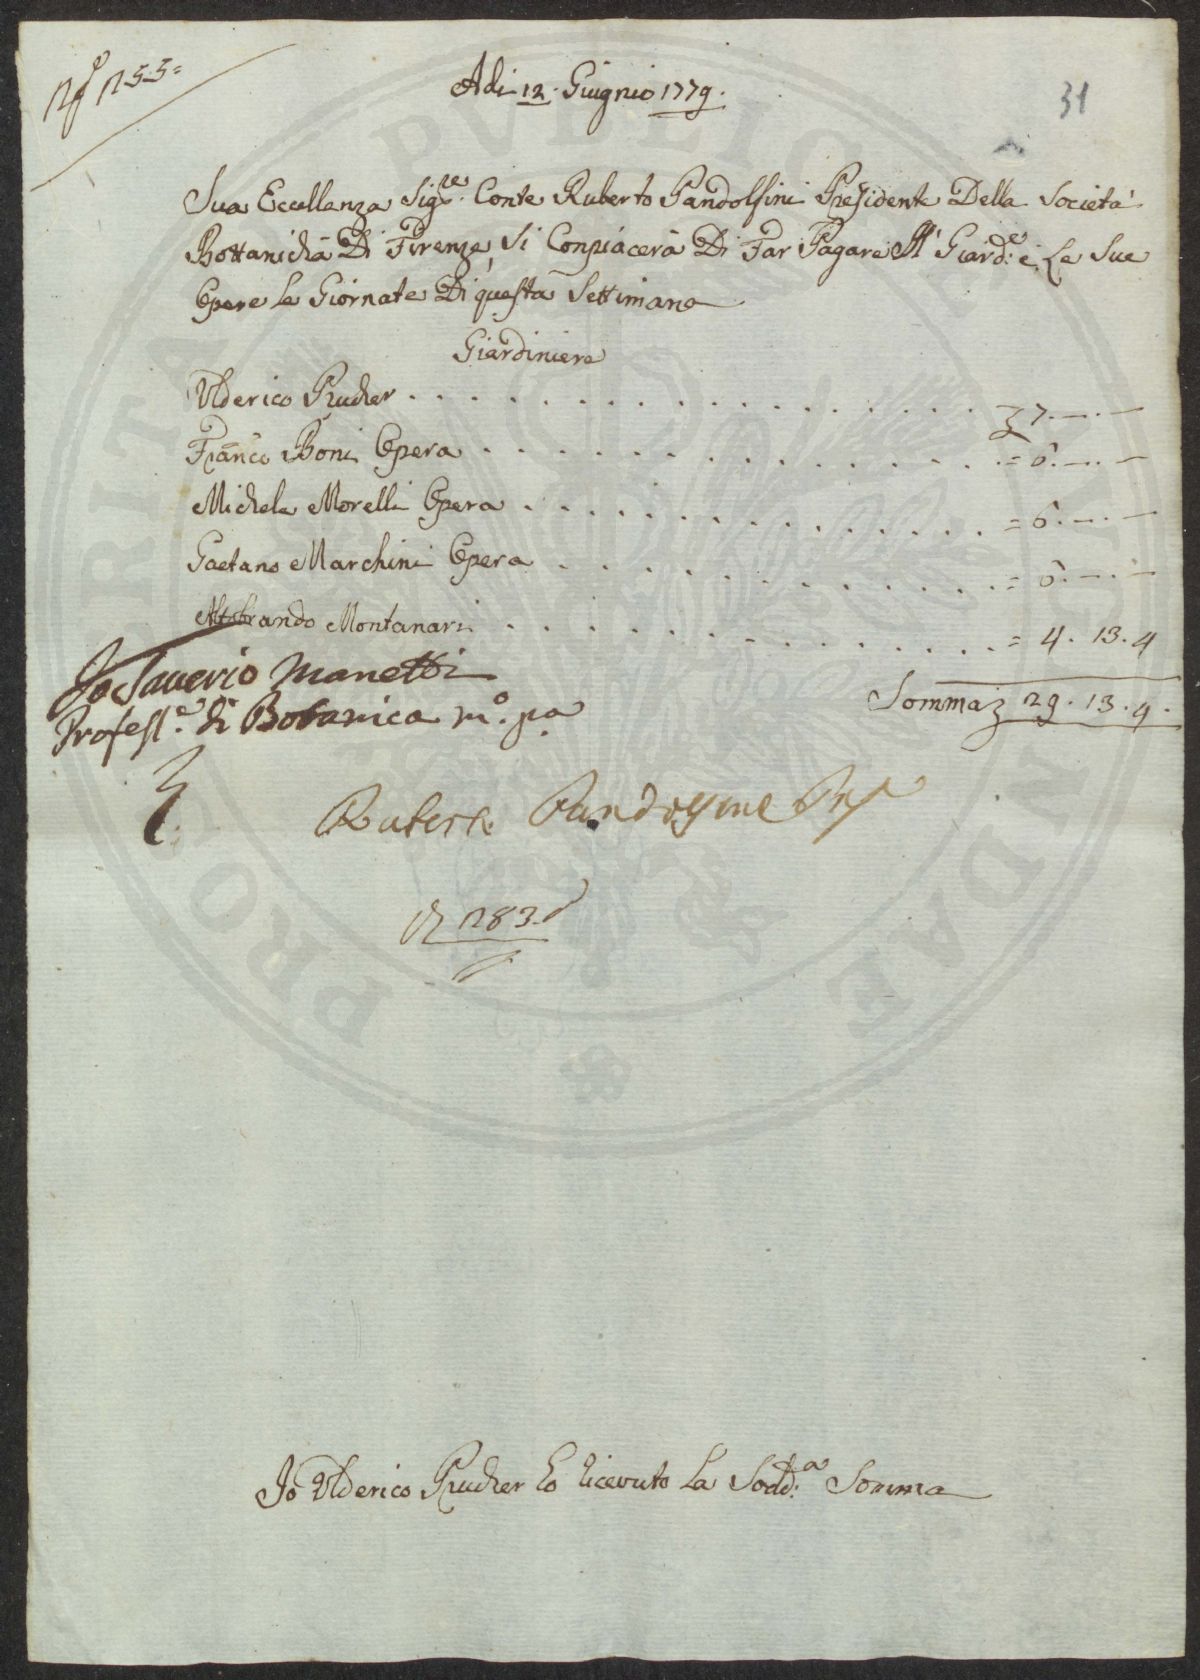 N.º 133=
Adi 12. Giugnio 1779.
31
Sua Eccellanza Sig.re Conte Ruberto Pandolfini Presidente Della Società
Bottanicha Di Firenze, Si Conpiacerà Di Far Pagare Al Giard.e e Le Sue
Opere le Giornate Di questa Settimana
Giardiniere
Ulderico Prucher . . . . . . . . . . . . . . . . . 7.—.—
Franco Boni Opera . . . . . . . . . . . . . . . = 6.—.—
Michele Morelli Opera . . . . . . . . . . . . . = 6.—.—
Gaetano Marchini Opera . . . . . . . . . . . = 6.—.—
Altobrando Montanari . . . . . . . . . . . . = 4. 13. 4
Somma 29. 13. 4.
Io Saverio Manetti
Profess.e di Botanica m.o pa
Ruberto Pandolfini Pres
283.
Io Ulderico Prucher ho ricevuto La Sodd.a Somma
PRO PUBLICA